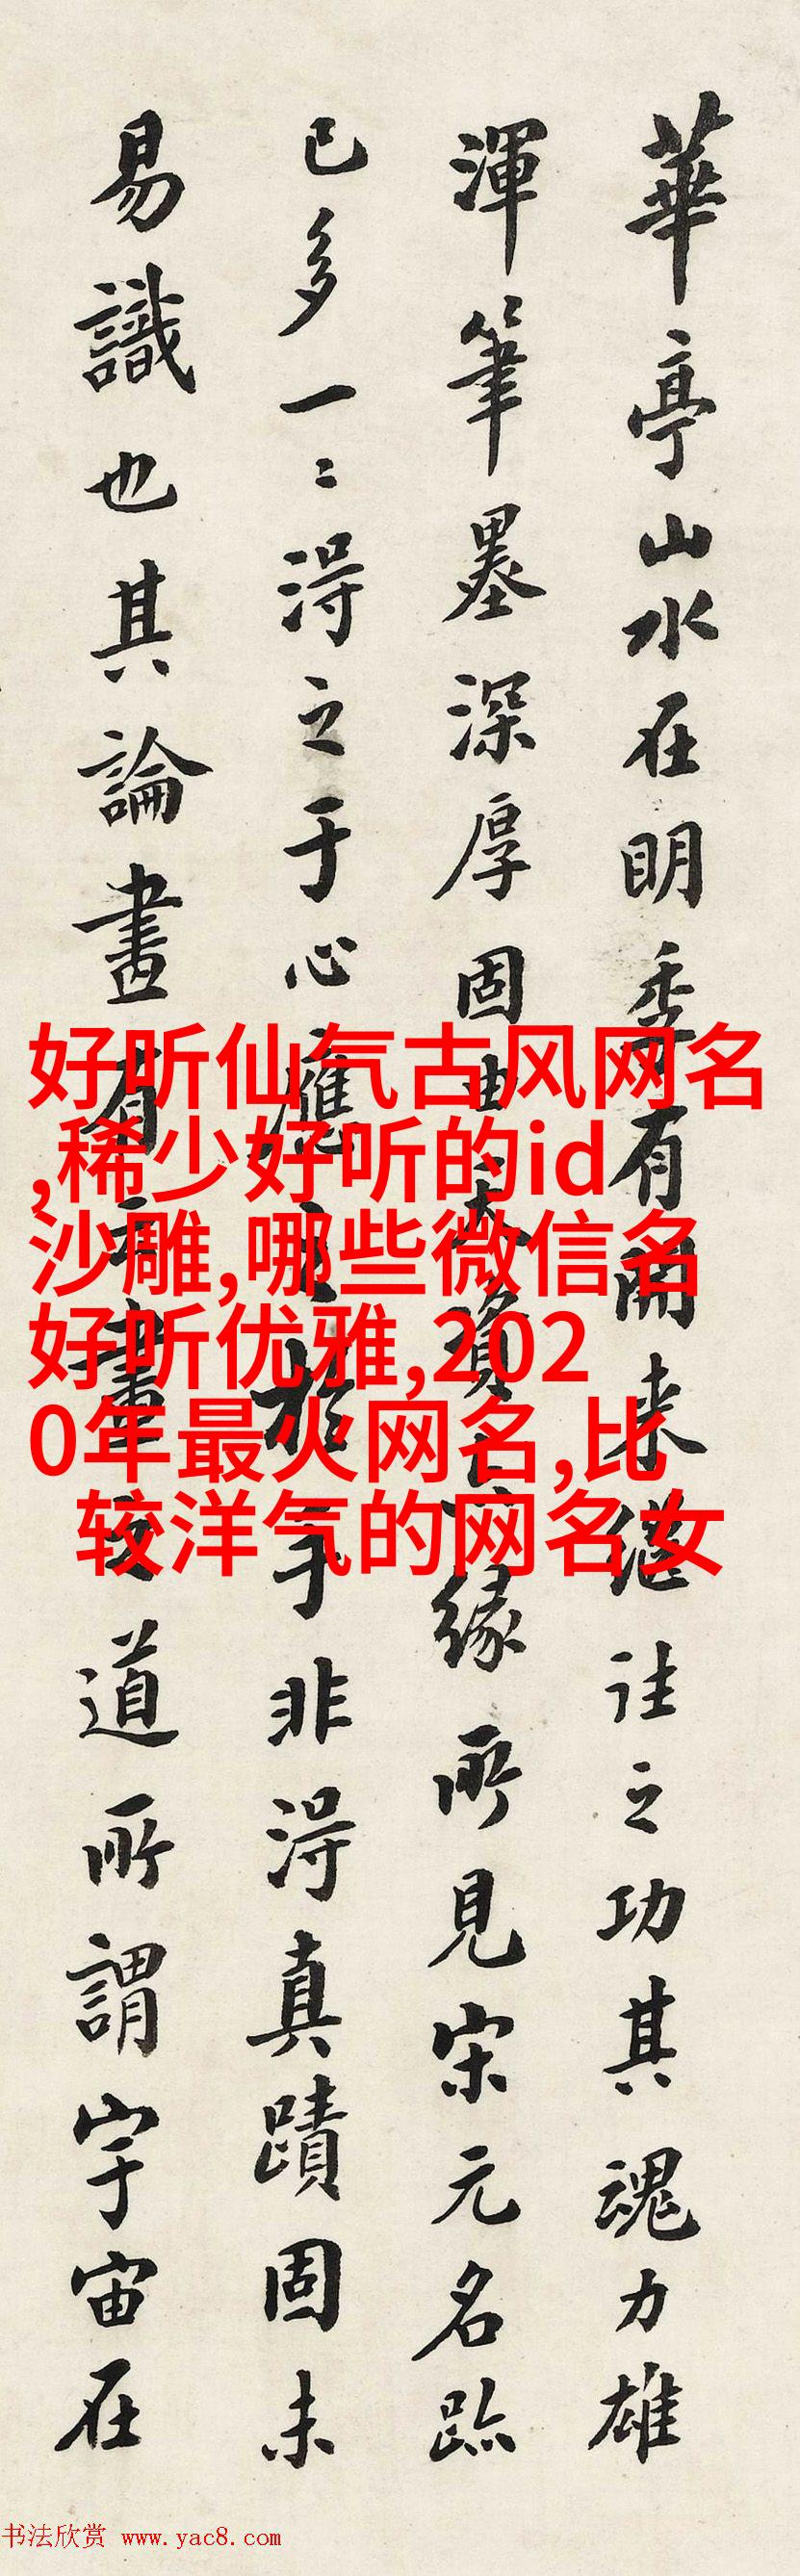 華亭山水在明季有開来繼往之功其魂力雄
渾筆墨深厚固由天資亦緣所見宋元名跡
已多一〻得之于心應之於手非得真蹟固未
易識也其論畫有云畫之道所謂宇宙在
好听仙气古风网名
,稀少好听的id
沙雕,哪些微信名
好听优雅,202
0年最火网名,比
较洋气的网名女
书法欣赏 www.yac8.com